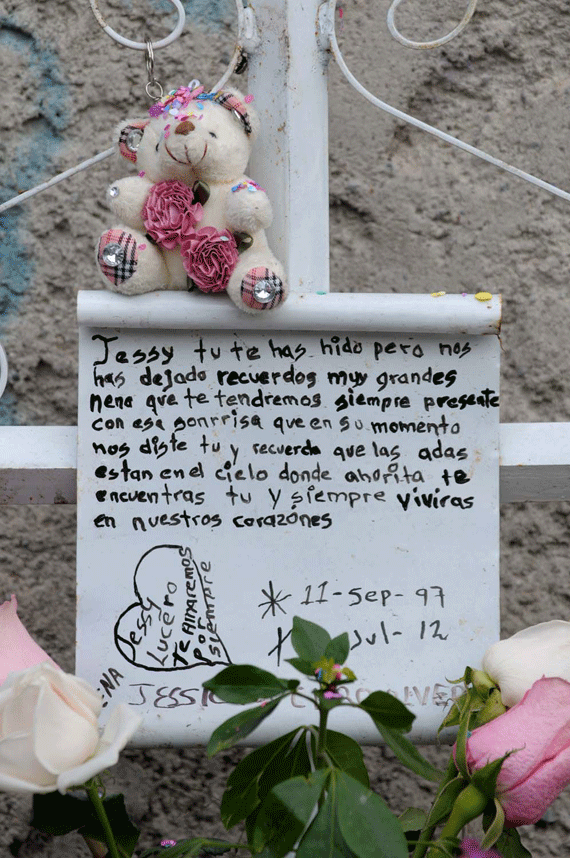 Jessy tu te has hido pero nos
has dejado recuerdos muy grandes
nena que te tendremos siempre presente
con esa sonrrisa que en su momento
nos diste tu y recuerda que las adas
estan en el cielo donde ahorita te
encuentras tu y siempre viviras
en nuestros corazónes
Jessy
Lucero
te Amaremos
por
siempre
11-Sep-97
Jul-12